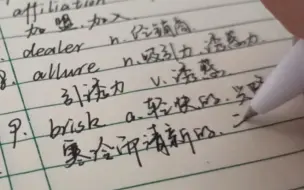 affiliation
加盟.加入
dealer n.经销商
8. allure n.吸引力.诱惑力
引诱力 v.诱惑
9. brisk a.轻快的.
寒冷而清新的.